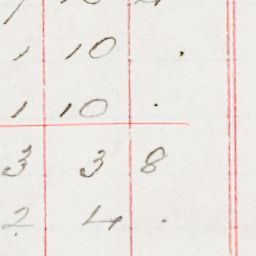 1 10 .
1 10 .
3 3 8
2 4 .